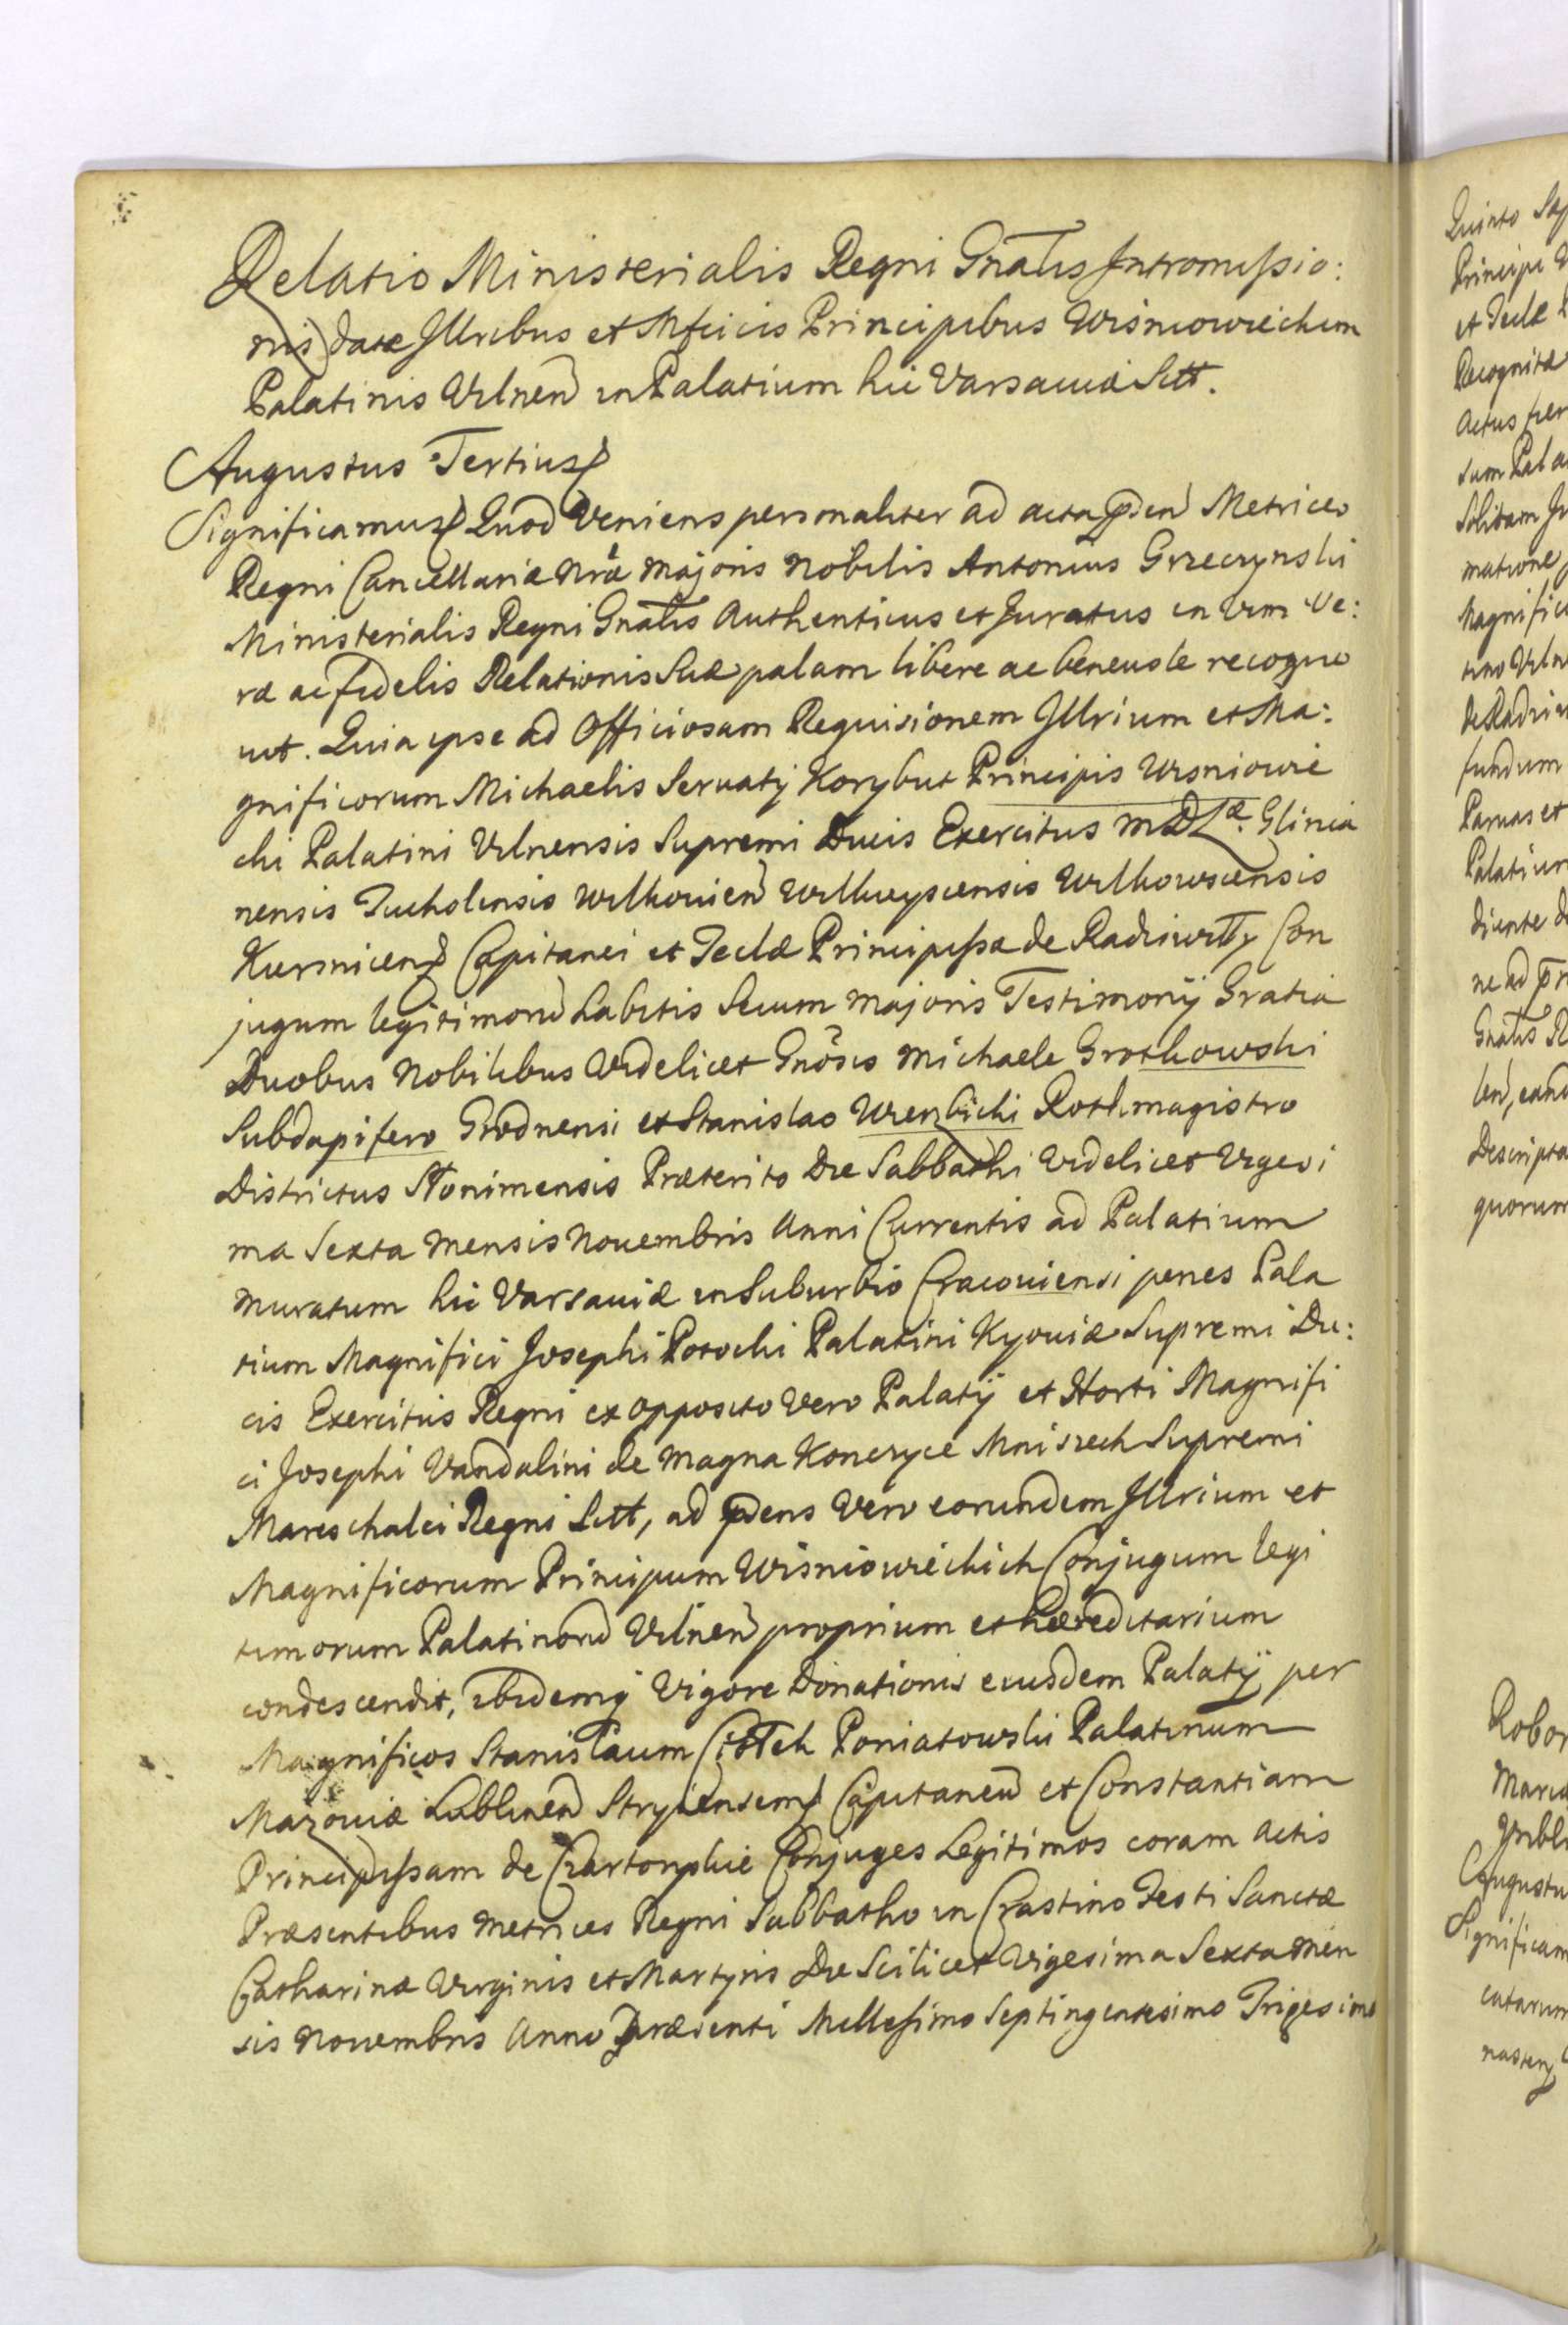 Relatio Ministerialis Regni Gnalis Intromissio:
nis datæ Illribus et Mficis Principibus Wisniowieckim
Palatinis Vilnen in Palatium hic Varsaviæ Sitt.
Augustus Tertius
Significamus Quod Veniens personaliter ad acta pden Metrices
Regni Cancellariæ Nræ Majoris Nobilis Antonius Grzeczynski
Ministerialis Regni Gnalis Authenticus et Juratus in vim Ve:
ræ ac fidelis Relationis Suæ palam libere ac benevole recogno
vit. Quia ipse ad Officiosam Requisionem Illrium et Ma:
gnificorum Michaelis Servatij Korybut Principis Wisniowie
cki Palatini Vilnensis Supremi Ducis Exercitus M D L æ. Glinia
nensis Tucholensis Wilkovien Wilkieyscensis Wilkowscensis
Kiersnicen Capitanei et Teclæ Principissæ de Radziwiłły Con
jugum legitimoru habitis Secum Majoris Testimonij Gratia
Duobus Nobilibus Videlicet Gnosis Michaele Grothowski
Subdapifero Grodnensi et Stanislao Wierzbicki Rothmagistro
Districtus Słonimensis Præterito Die Sabbathi Videlicet Vigesi
ma Sexta Mensis Novembris Anni Currentis ad Palatium
Muratum hic Varsaviæ in Suburbio Cracoviensi penes Pala
tium Magnifici Josephi Potocki Palatini Kyoviæ Supremi Du:
cis Exercitus Regni ex opposito Vero Palatij et Horti Magnifi
ci Josephi Vandalini de Magna Konczyce Mniszech Supremi
Mareschalci Regni Sitt, ad pdens Vero eorundem Illrium et
Magnificorum Principum Wisniowieckich Conjugum legi
timorum Palatinoru Vilnen proprium et hæreditarium
condescendit, ibidemq Vigore Donationis eiusdem Palatij per
Magnificos Stanisłaum Ciołek Poniatowski Palatinum
Mazoviæ Lublinen Stryiensem Capitaneu et Constantiam
Principissam de Czartoryskie Conjuges Legitimos coram Actis
Præsentibus Metrices Regni Sabbatho in Crastino Festi Sanctæ
Catharinæ Virginis et Martyris Die Scilicet Vigesima Sexta Men
sis Novembris Anno Præsenti Millesimo Septingentesimo Trigesimo
Quinto
Principi
et Teclæ
Recognitæ
Actus per
sum
Solitam
matione
Magnific
tino Viln
fundum
Parvas et
Palatium
diente
ne ad
Gnalis
Descripta
quorum
Robor
Augustu
Significam